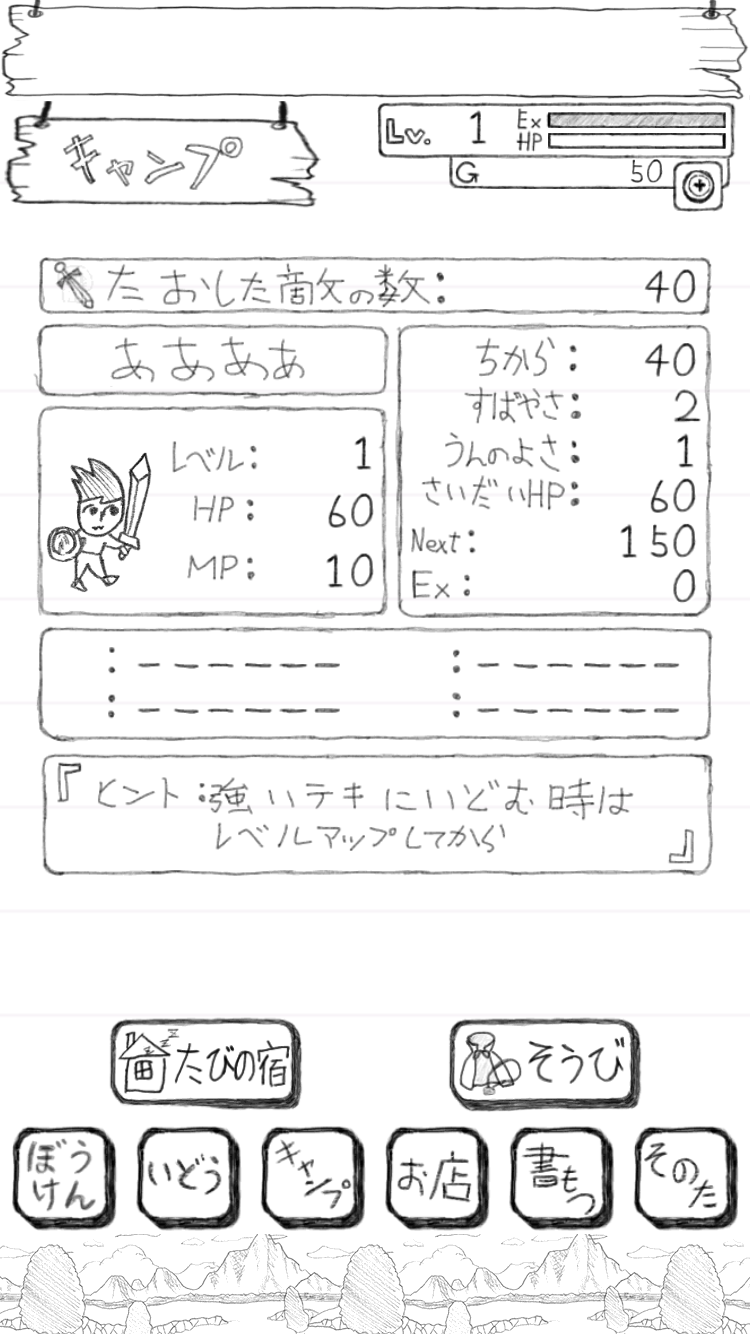 キャンプ
Lv. 1 Ex
HP
G 50
たおした敵の数: 40
ああああ
レベル: 1
HP: 60
MP: 10
ちから: 40
すばやさ: 2
うんのよさ: 1
さいだいHP: 60
Next: 150
Ex: 0
: ------ : ------
: ------ : ------
『ヒント:強いテキにいどむ時は
レベルマップしてから』
たびの宿
そうび
ぼうけん
いどう
キャンプ
お店
書もつ
そのた